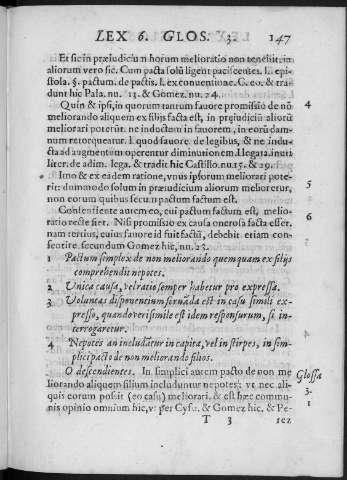 LEX 6. GLOS. 3. 147
Et sic in præiudiciũ n horum melioratio non tenebit. in
aliorum vero sic. Cum pacta solũ ligent paciscentes. l. epi-
stola. §. pactum. de pactis. l. ex conventionæ. C. eo. & tra-
dunt hic Pala. nu. 13. & Gomez. nu. 24.
Quin & ipsi, in quorum tantum fauore promissio de nõ 4
meliorando aliquem ex filijs facta est, in præiudiciũ aliorũ
meliorari poterũt. ne inductum in fauorem, in eorũ dam-
num retorqueatur. l. quod fauore. de legibus, & ne indu-
cta ad augmentum operentur diminutionem. l. legata. inuti
liter. de adim. lega. & tradit hic Castillo. nu. 15. & 29.
Imo & ex eadem ratione, vnus ipsorum meliorari pote- 5
rit: dummodo solum in præiudicium aliorum melioretur,
non eorum quibuscum pactum factum est.
Consentiente autem eo, cui pactum factum est, melio- 6
ratio recte fiet. Nisi promissio ex causa onerosa facta esset.
nam tertius, cuius fauore id fuit factũ, debebit etiam con-
sentire. secundum Gomez hic, nu. 23.
1 Pactum simplex de non meliorando quemquam ex filijs
comprehendit nepotes.
2 Unica causa, vel ratio semper habetur pro expressa.
3 Voluntas disponentium seruãda est in casu simili ex-
presso, quando verisimile est idem responsurum, si in-
terrogaretur.
4 Nepotes an includãtur in capita, vel in stirpes, in sim-
plici pacto de non meliorando filios.
O descendientes. In simplici autem pacto de non me Glossa
liorando aliquem filium includuntur nepotes; vt nec ali- 3.
quis eorum possit (eo casu) meliorari. & est hæc commu- 1
nis opinio omnium hic, vt per Cyfu. & Gomez hic. & Pe-
T 3 rez